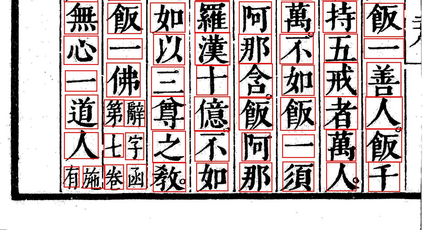 飯一善人。飯千
持五戒者萬人。
萬。不如飯一須
阿那含。飯阿那
羅漢十億。不如
如以三尊之教。
飯一佛
辭字函
第七卷
無心一道人
施
有